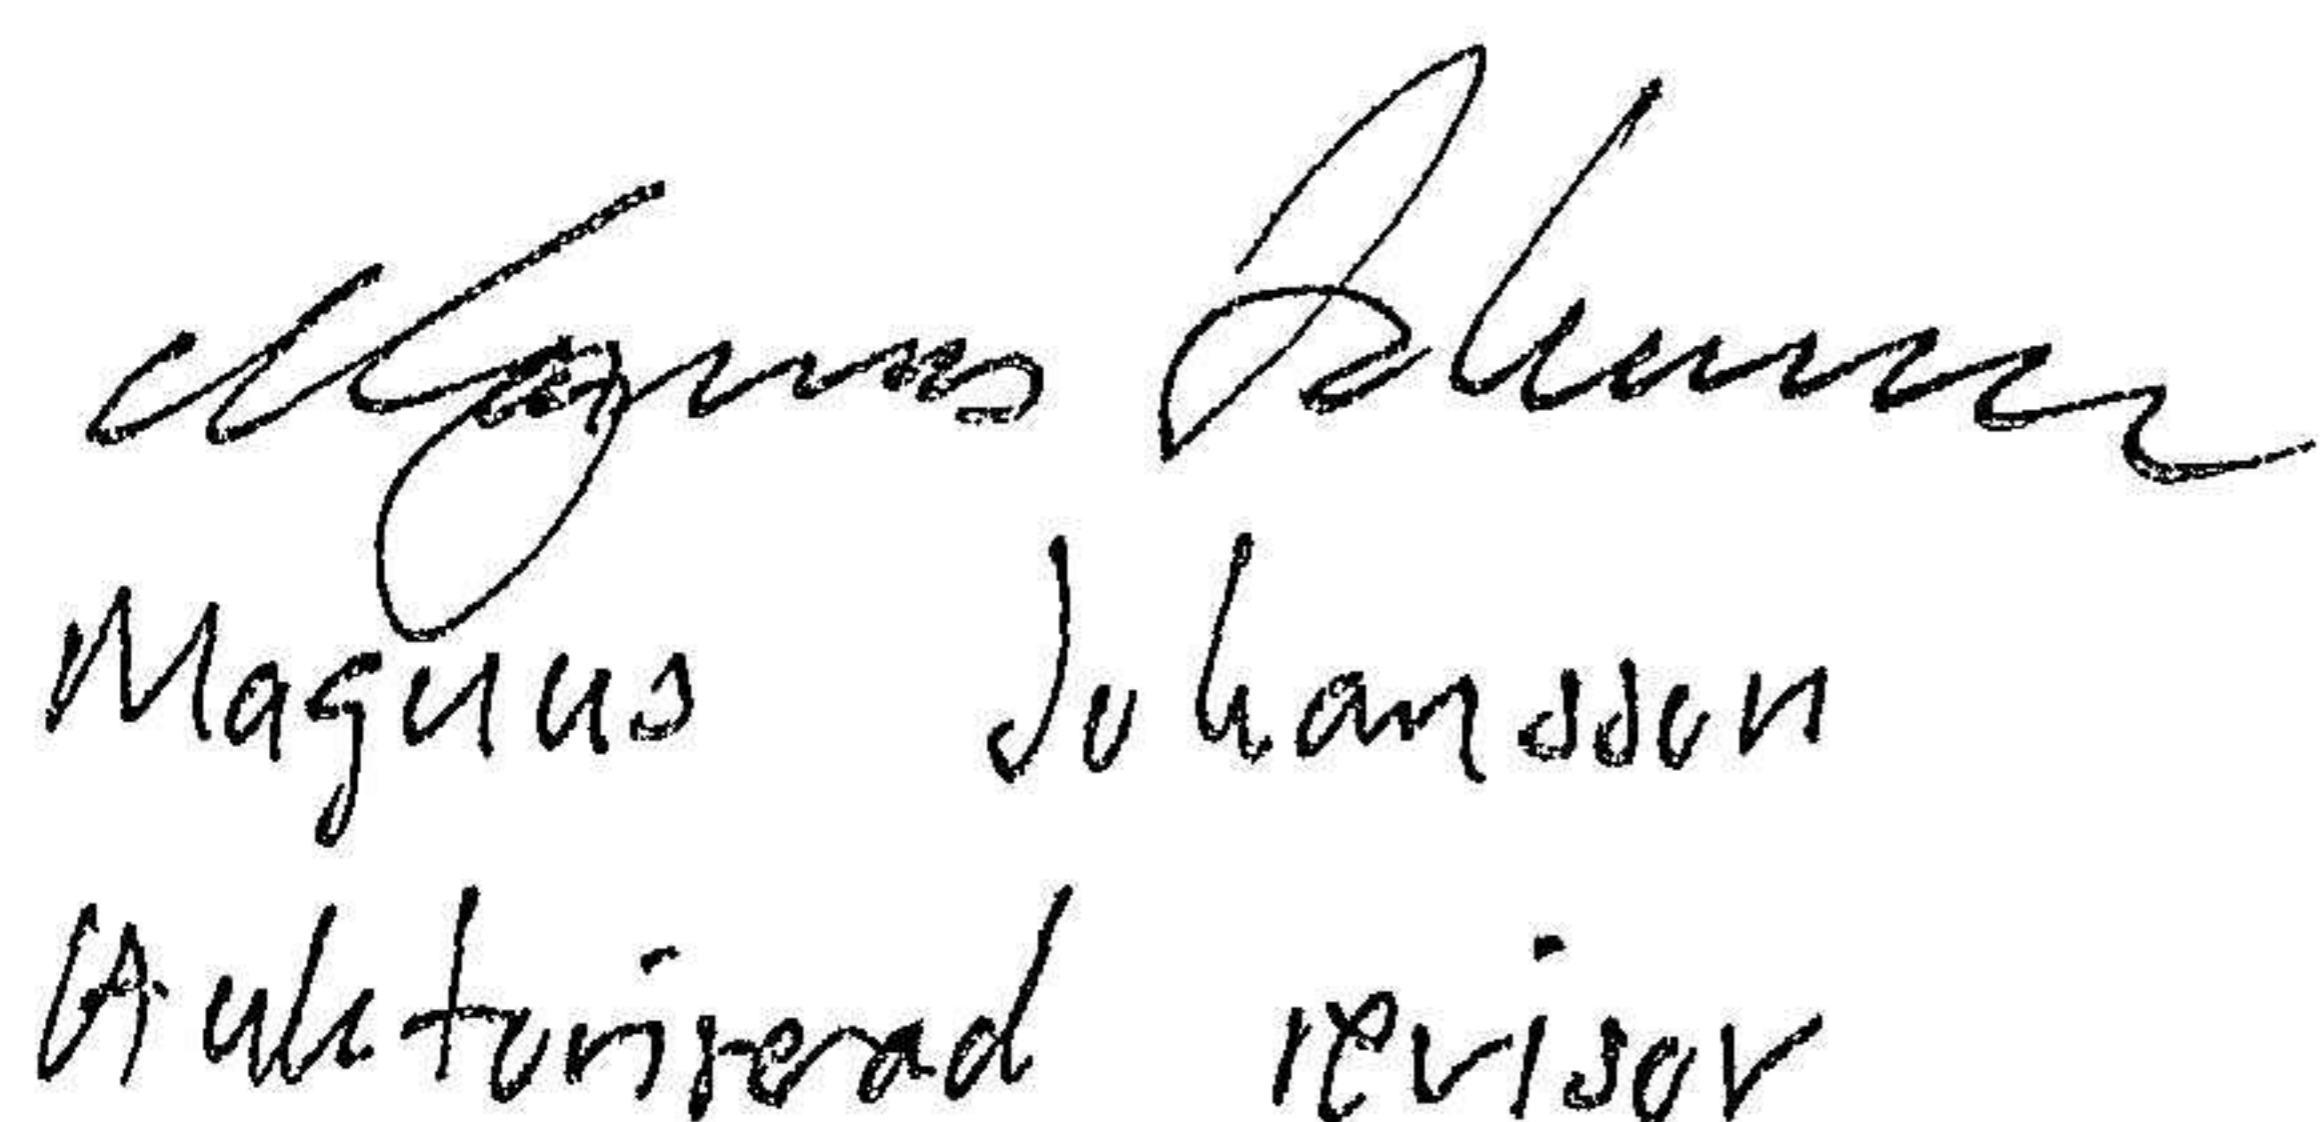 Magnus Johansson
Magnus Johansson
Auktoriserad revisor